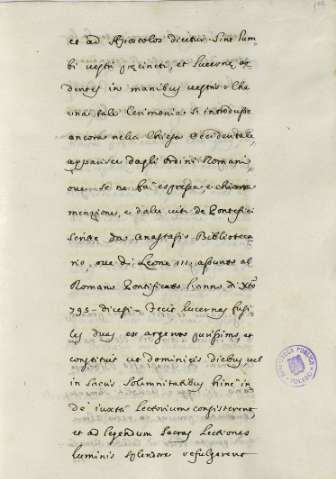 et ad Apostolos dicitur. Sint lum-
bi vestri precincti, et lucerne ar-
dentes in manibus vestris. Che
una tale Cerimonia si introdusse
ancora nella Chiesa Occidentale,
apparisce dagli ordini Romani,
ove se ne fa espressa, e chiara
menzione, e dalle vite de Pontefici
scritte da Anastasio Biblioteca-
rio, ove di Leone III assunto al
Romano Pontificato l'anno di Xto
795 - dicesi - Fecit lucernas fusi-
les duas ex argento purissimo et
constituit ut dominicis diebus vel
in sacris solemnitatibus hinc in-
de iuxta Lectorium consisterent
et ad legendum sacras lectiones
luminis splendore refulgerent
BIBLIOTECA PUBLICA
TOLEDO